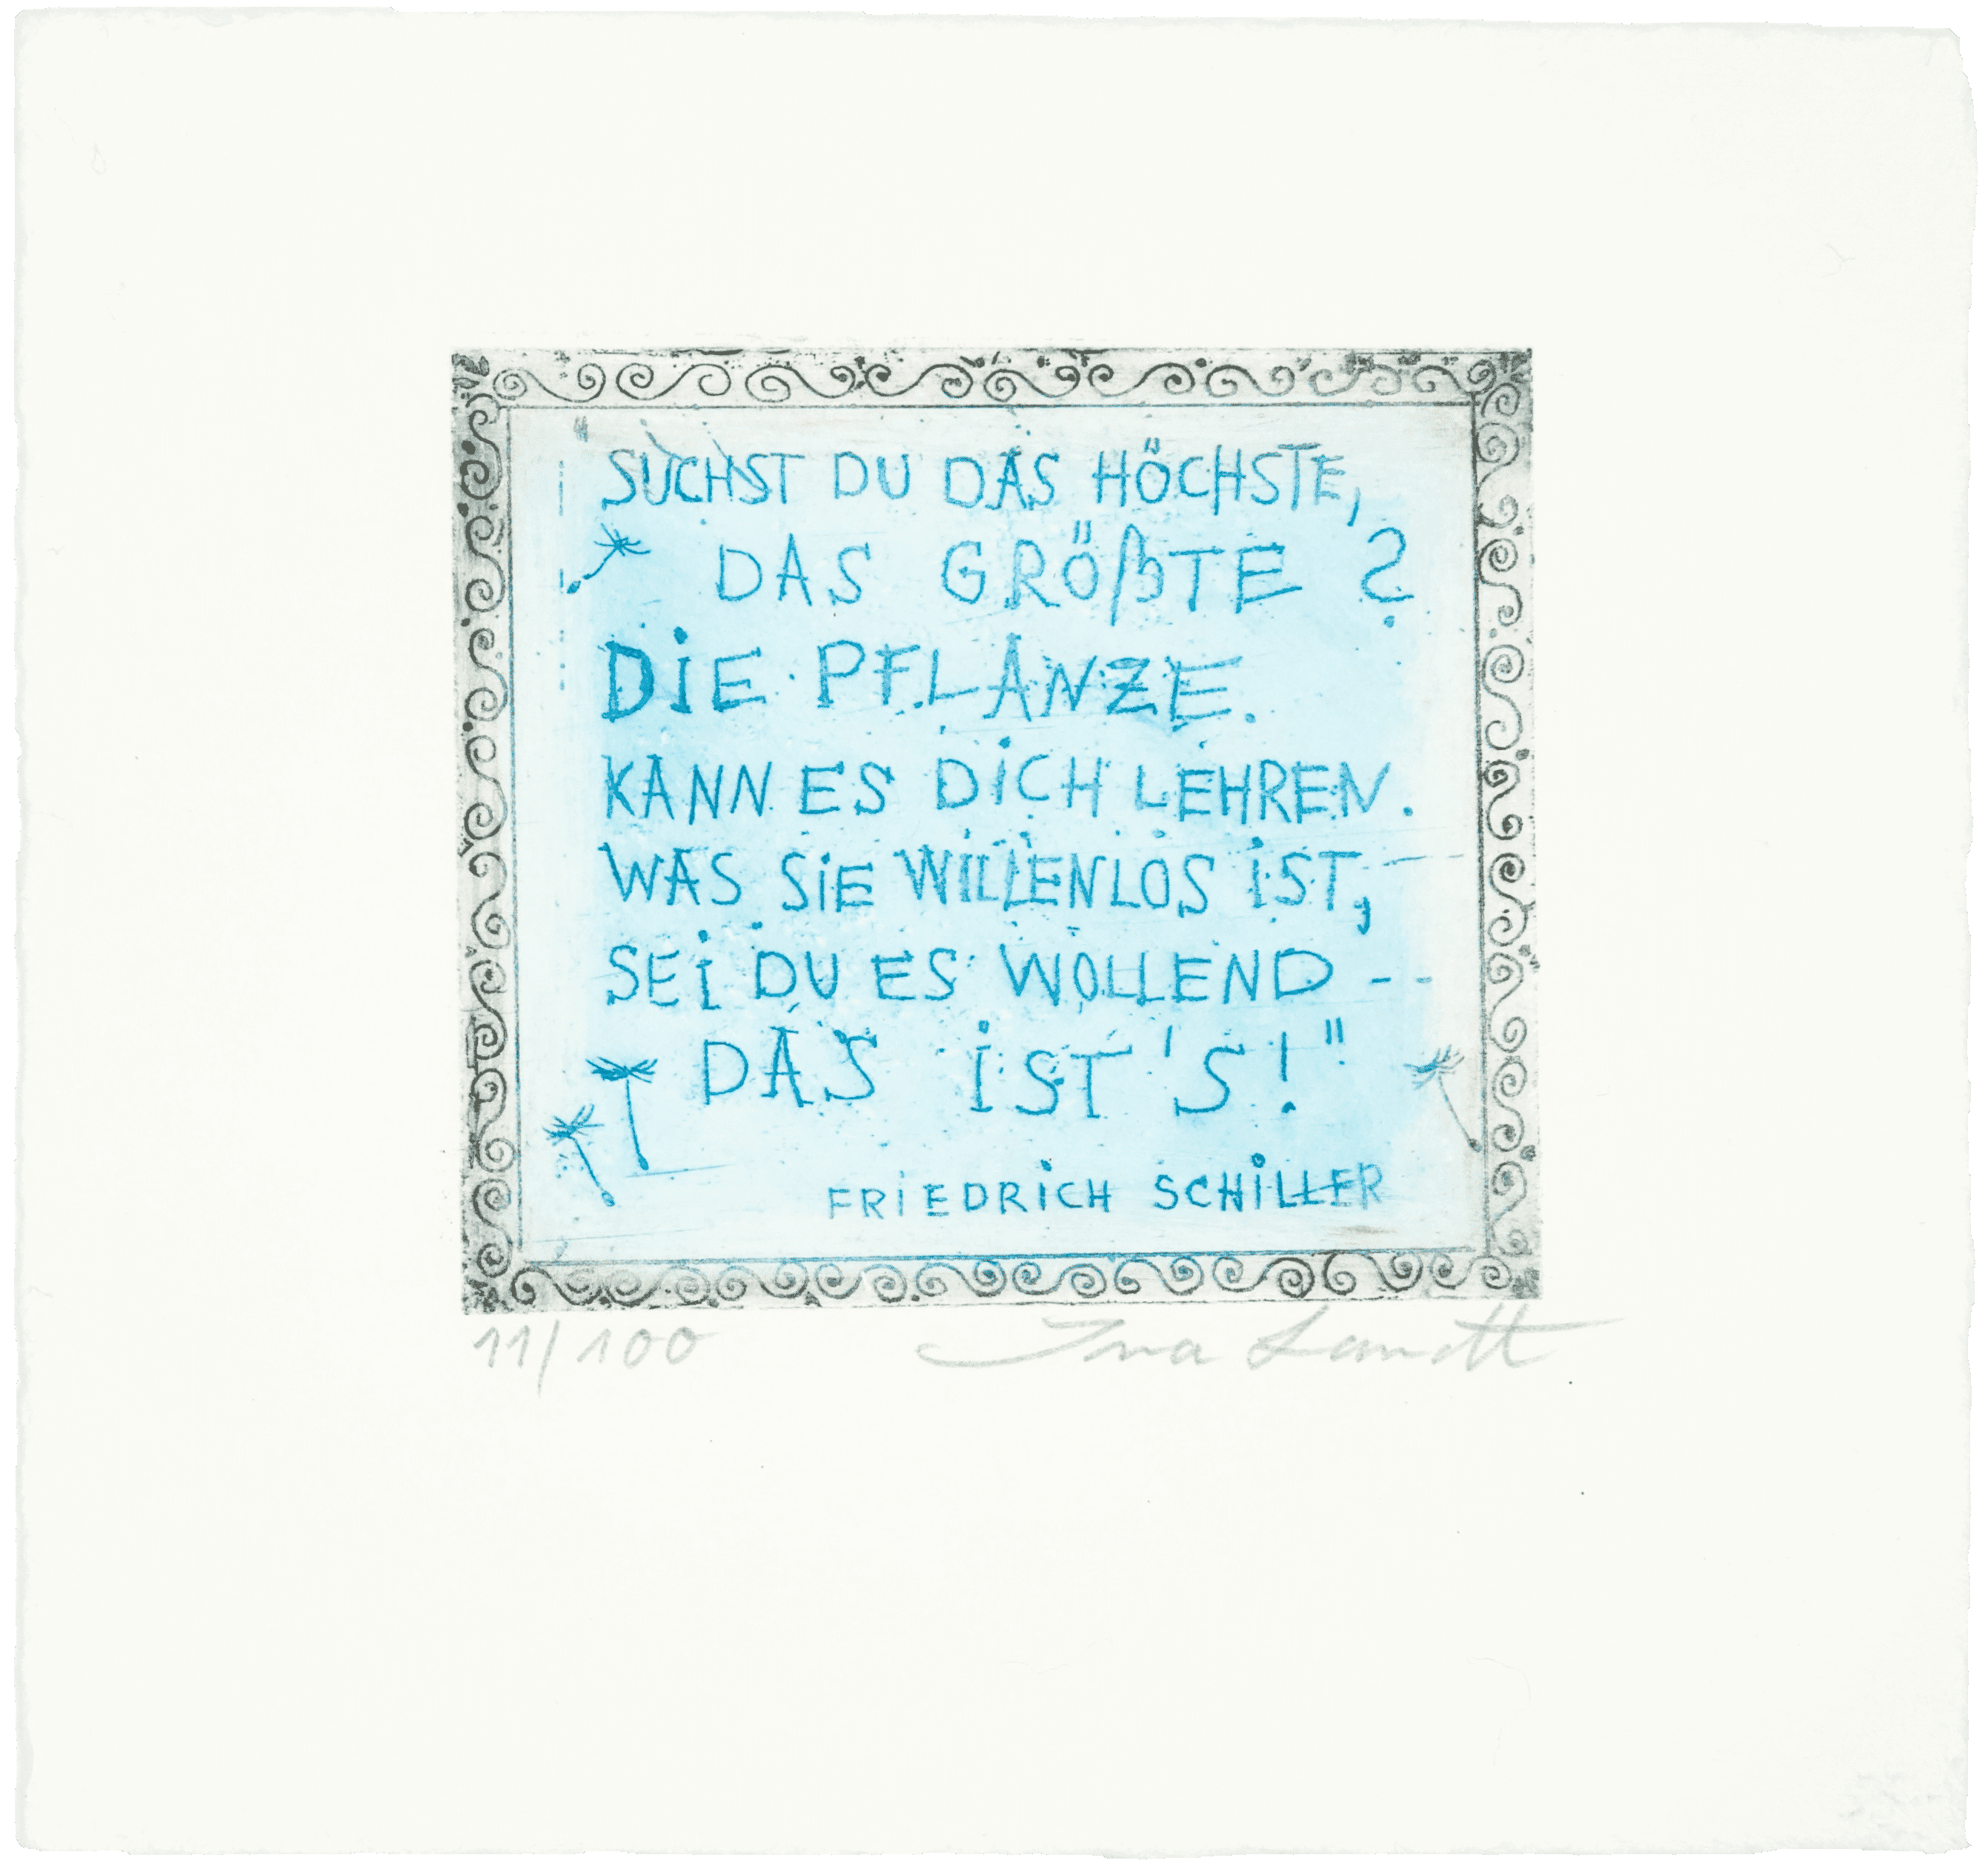 "SUCHST DU DAS HÖCHSTE,
DAS GRÖßTE ?
DiE PFLANZE.
KANN ES DiCH LEHREN.
WAS SiE WiLLENLOS iST,
SEi DU ES WOLLEND --
DAS iST'S!"
FRiEDRiCH SCHiLLER
11/100